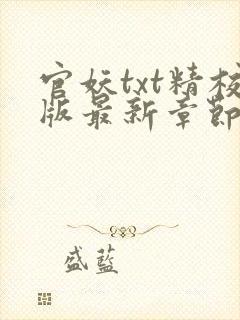 官妖txt精校
版最新章節
盛藍